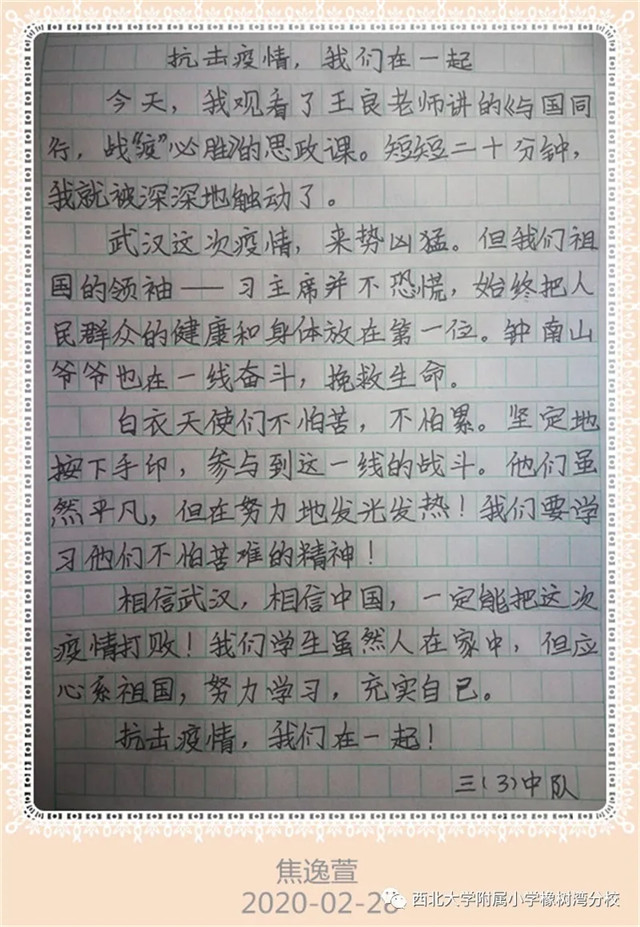 抗击疫情，我们在一起
今天，我观看了王良老师讲的《与国同
行，战“疫”必胜》的思政课。短短二十分钟，
我就被深深地触动了。
武汉这次疫情，来势凶猛。但我们祖
国的领袖——习主席并不恐慌，始终把人
民群众的健康和身体放在第一位。钟南山
爷爷也在一线奋斗，挽救生命。
白衣天使们不怕苦，不怕累。坚定地
按下手印，参与到这一线的战斗。他们虽
然平凡，但在努力地发光发热！我们要学
习他们不怕苦难的精神！
相信武汉，相信中国，一定能把这次
疫情打败！我们学生虽然人在家中，但应
心系祖国，努力学习，充实自己。
抗击疫情，我们在一起！
三（3）中队
焦逸萱
2020-02-28
西北大学附属小学橡树湾分校